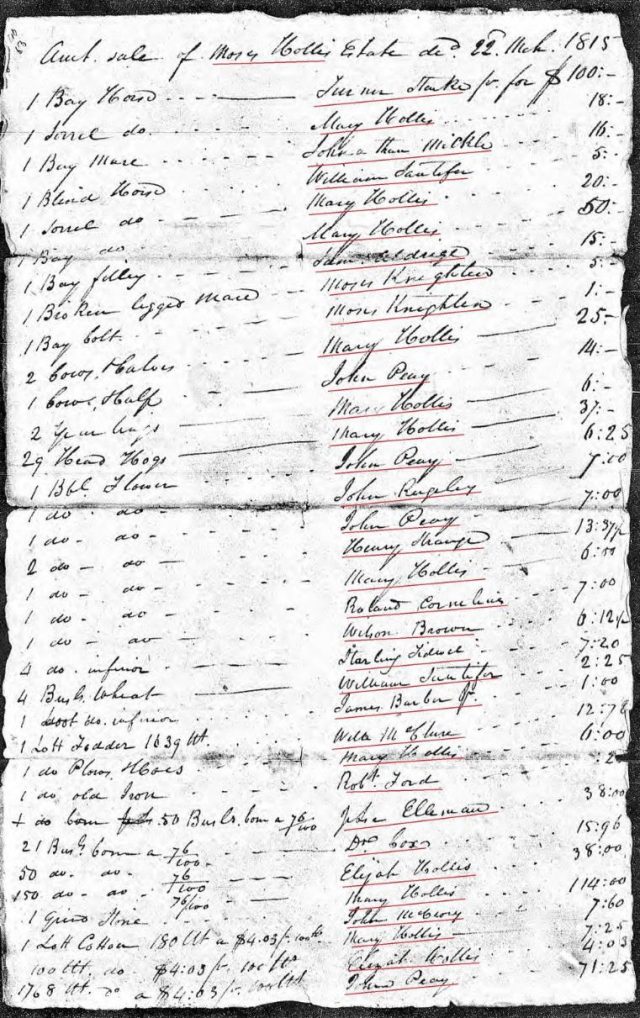 Amt. sale of Moses Hollis Estate decd. 22d. Mch. 1815
1 Bay Horse Turner Starke for $100:-
1 Sorrel do Mary Hollis 18:-
1 Bay Mare Johnathan Mickle 16:-
1 Blind Horse William Santifer 5:-
1 Sorrel do Mary Hollis 20:-
1 Bay do Mary Hollis 50:-
1 Bay filley 15:-
1 Broken legged Mare Moses Knighten 5:-
1 Bay Colt Moses Knighten 1:-
2 Cows, Halves Mary Hollis 25:-
1 Cow, Half John Peay 14:-
2 Yearlings Mary Hollis 6:-
29 Head Hogs Mary Hollis 37:-
1 Bbl. Flower John Peay 6:25
1 do do John 7:00
1 do do John Peay 7:00
2 do do Henry 13:
1 do do Mary Hollis 6:00
1 do do Roland Cornelius 7:00
1 do do Wilson Brown 6:12
4 do inferior Starling 7:20
4 Bush. Wheat William Santifer 2:25
1 do. inferior James Barber 1:00
1 Lott Fodder 1639 Wt. McClure 12:78
1 do Plows Hoes Mary Hollis 6:00
1 do old Iron Robt. Ford
do corn 50 Bush. corn a 76/100 Elleman 38:00
21 Bush. corn a 76/100 Cox 15:96
50 do do 76/100 Elijah Hollis 38:00
150 do do 76/100 Mary Hollis 114:00
1 Grind Stone John 7:60
1 Lott Cotton 180 Wt a $4:03 Mary Hollis 7:25
100 Wt. do $4:03 Elijah Hollis 4:03
1768 Wt. do a $4:03 John Peay 71:25